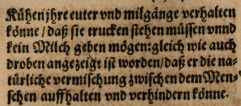 Kühen jhre euter vnd milgänge verhalten
könne / daß sie trucken stehen müssen vnnd
kein Milch geben mögen: gleich wie auch
droben angezeigt ist worden / daß er die na-
türliche vermischung zwischen dem Men-
schen auffhalten vnd verhindern könne.